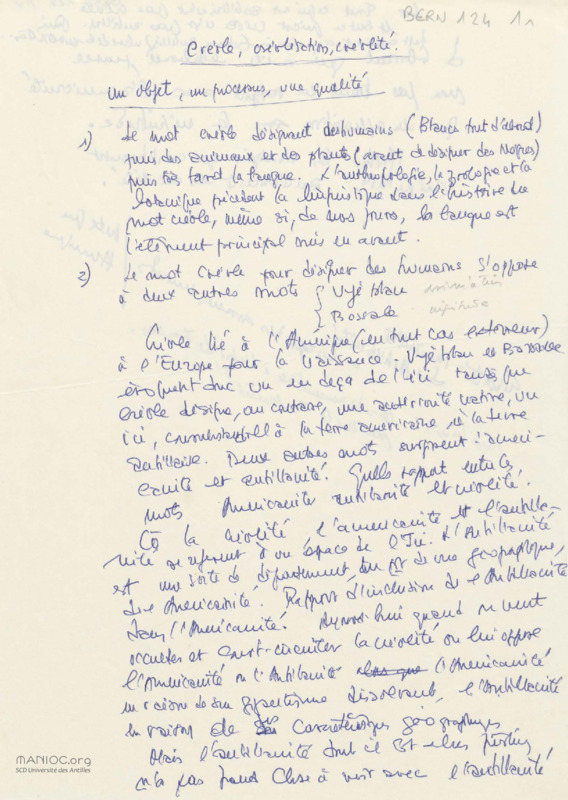 BERN 124 1r
Créole, créolisation, créolité.
Un objet, un processus, une qualité
1) Le mot créole désignant des humains (Blancs tout d'abord)
puis des animaux et des plantes (avant de désigner des Nègres)
puis tard la langue. L'anthropologie, la zoologie et la
botanique précèdent la linguistique dans l'histoire du
mot créole, même si, de nos jours, la langue est
l'élément principal mis en avant.
2) Le mot créole pour désigner des humains s'oppose
à deux autres mots { Vyé blan
{ Bossale
Créole lié à l'Amérique (en tout cas
à l'Europe pour la naissance. Vyé blan et Bossale
évoquent donc un en deça de l'ici tandis que
créole désigne, au contraire, une antériorité native, un
ici, consubstantiel à la terre américaine, à la terre
antillaise. Deux autres mots surgissent : améri-
canité et antillanité. Quels rapports entre les
mots Américanité antillanité et créolité.
la créolité, l'américanité et l'antilla-
nité se réfèrent à un espace de l'Ici. L'Antillanité
est une sorte de département du pt de vue géographique,
de l'Américanité. Rapport d'inclusion de l'Antillanité
dans l'Américanité. Aujourd'hui quand on veut
occulter et court-circuiter la créolité on lui oppose
l'Américanité ou l'Antillanité l'Américanité
en raison de son gigantisme dissolvant, l'Antillanité
en raison de ses caractéristiques géographiques
Mais l'antillanité dont il est alors
n'a pas grand chose à voir avec l'antillanité
MANIOC.org
SCD Université des Antilles